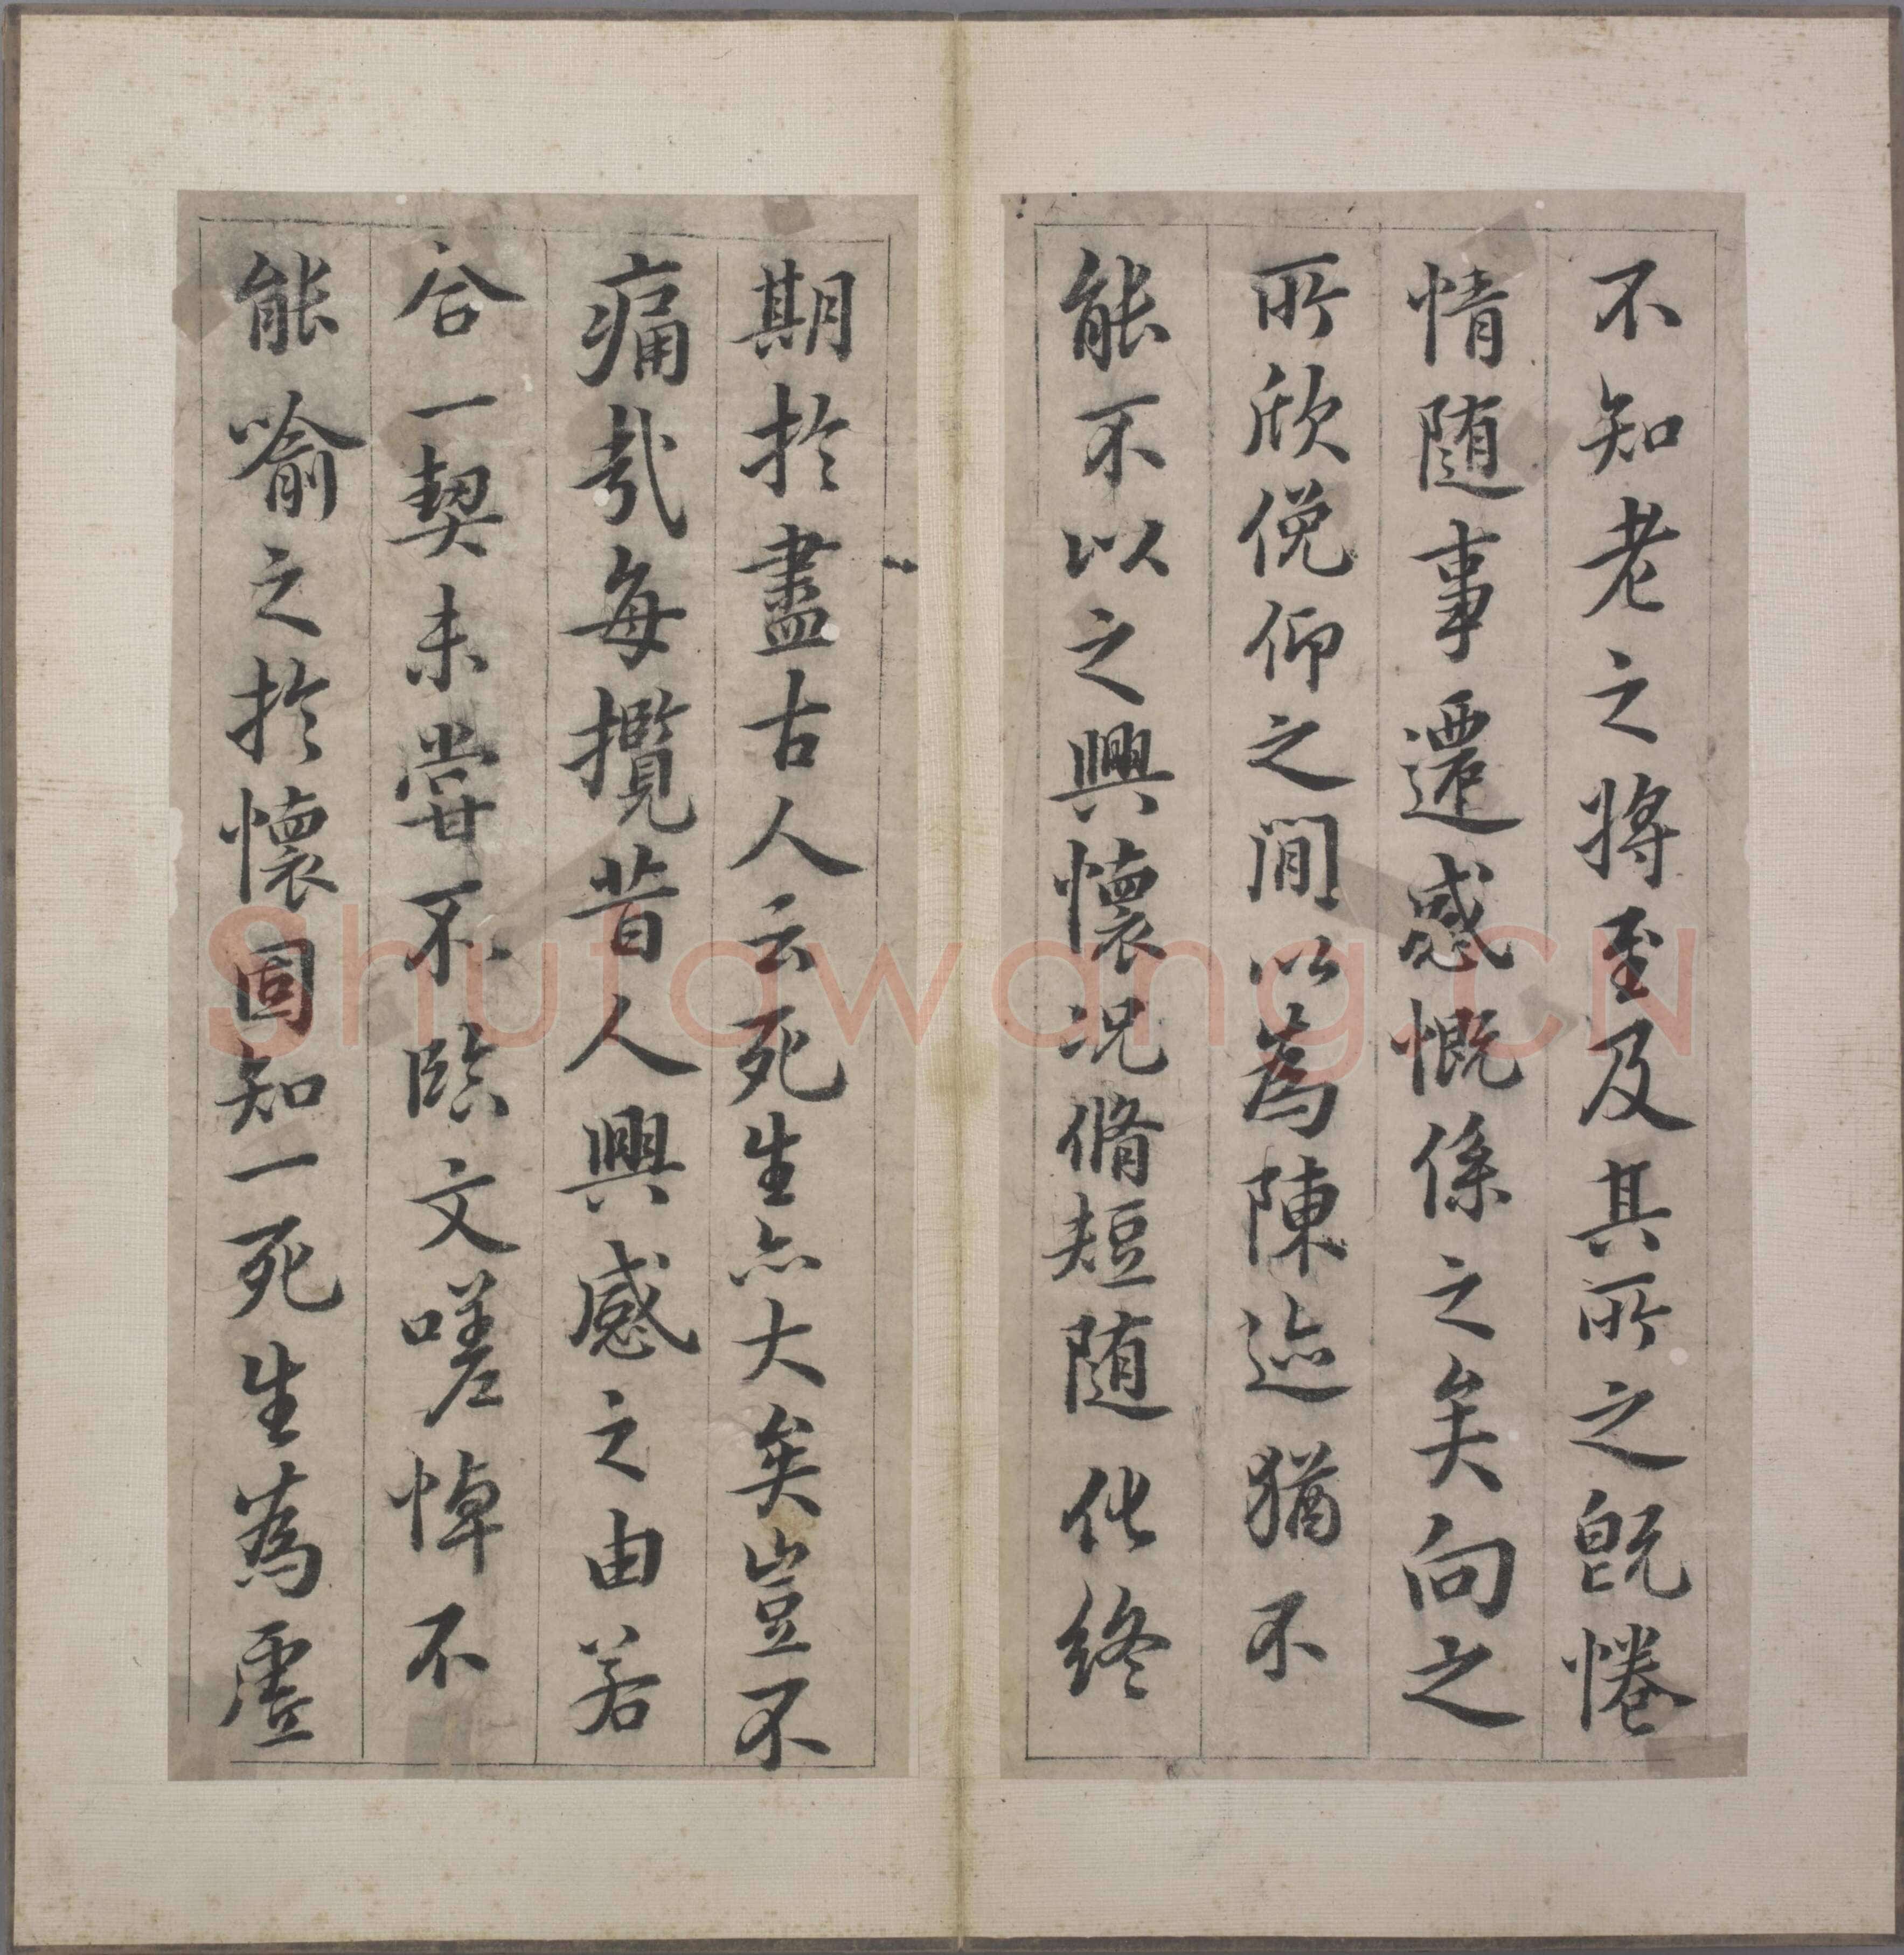 不知老之將至及其所之既惓
情随事遷感慨係之矣向之
所欣俛仰之間以為陳迹猶不
能不以之興懷况脩短随化終
期於盡古人云死生亦大矣豈不
痛哉每攬昔人興感之由若
合一契未甞不臨文嗟悼不
能喻之於懷固知一死生為虛
Shufawang.CN